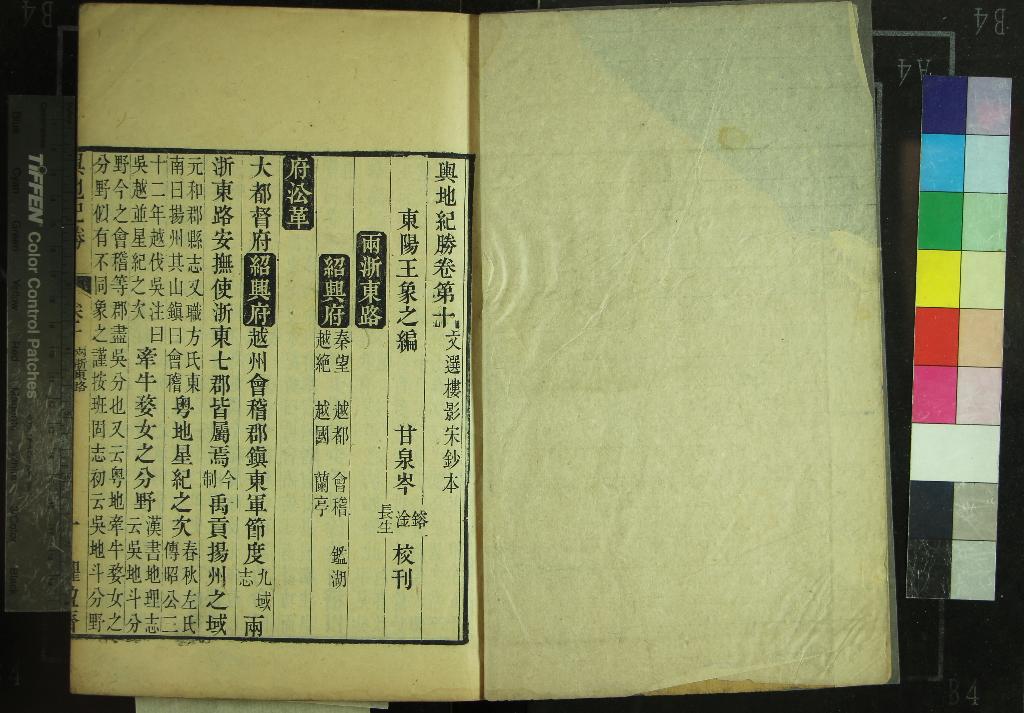 輿地紀勝卷第十 文選樓影宋鈔本
東陽王象之編 甘泉岑 鎔 淦 長生 校刊
兩浙東路
紹興府 秦望 越都 會稽 鑑湖
越絶 越國 蘭亭
府沿革
大都督府 紹興府 越州會稽郡鎭東軍節度 九域志 兩
浙東路安撫使浙東七郡皆屬焉 今制 禹貢揚州之域
元和郡縣志又職方氏東
南曰揚州其山鎭曰會稽 粤地星紀之次 春秋左氏
傳昭公三
十二年越伐吳注曰
吳越並星紀之次 牽牛婺女之分野 漢書地理志
云吳地斗分
野今之會稽等郡盡吳分也又云粤地牽牛婺女之
分野似有不同象之謹按班固志初云吳地斗分野
兩浙東路
一
TIFFEN Color Control Patches
B4
A4
B4